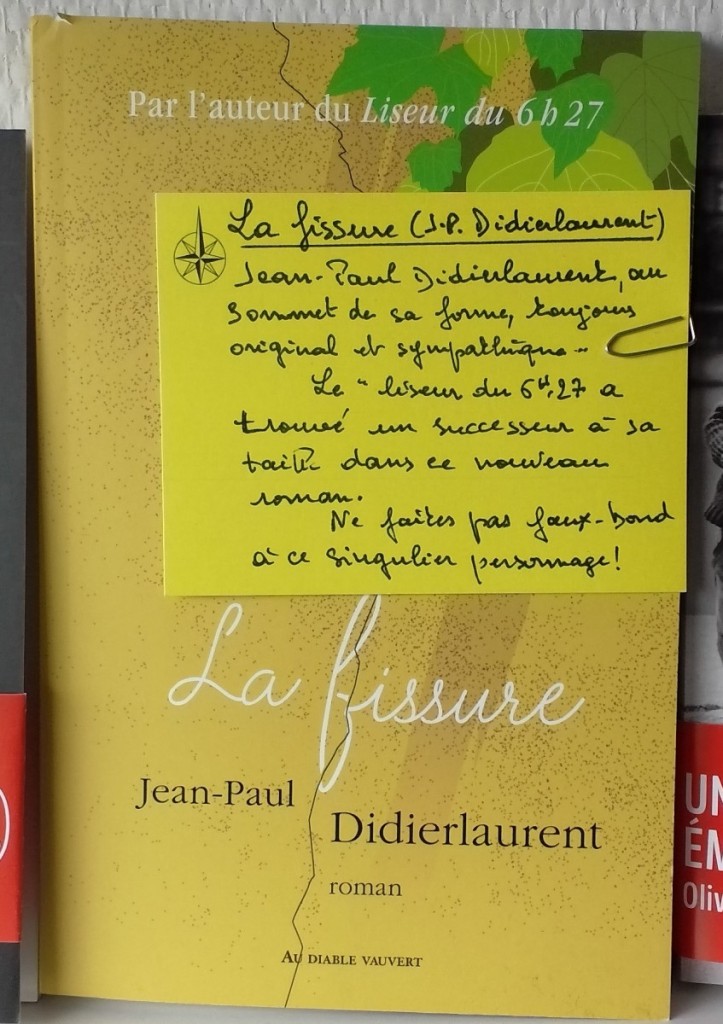 Par l'auteur du Liseur du 6 h 27
La fissure (J.P. Didierlaurent)
Jean-Paul Didierlaurent, au
sommet de sa forme, toujours
original et sympathique..
Le "liseur du 6H.27 a
trouvé un successeur à sa
taille dans ce nouveau
roman.
Ne faites pas faux-bond
à ce singulier personnage!
La fissure
Jean-Paul
Didierlaurent
roman
AU DIABLE VAUVERT
UN
ÉM
Oliv